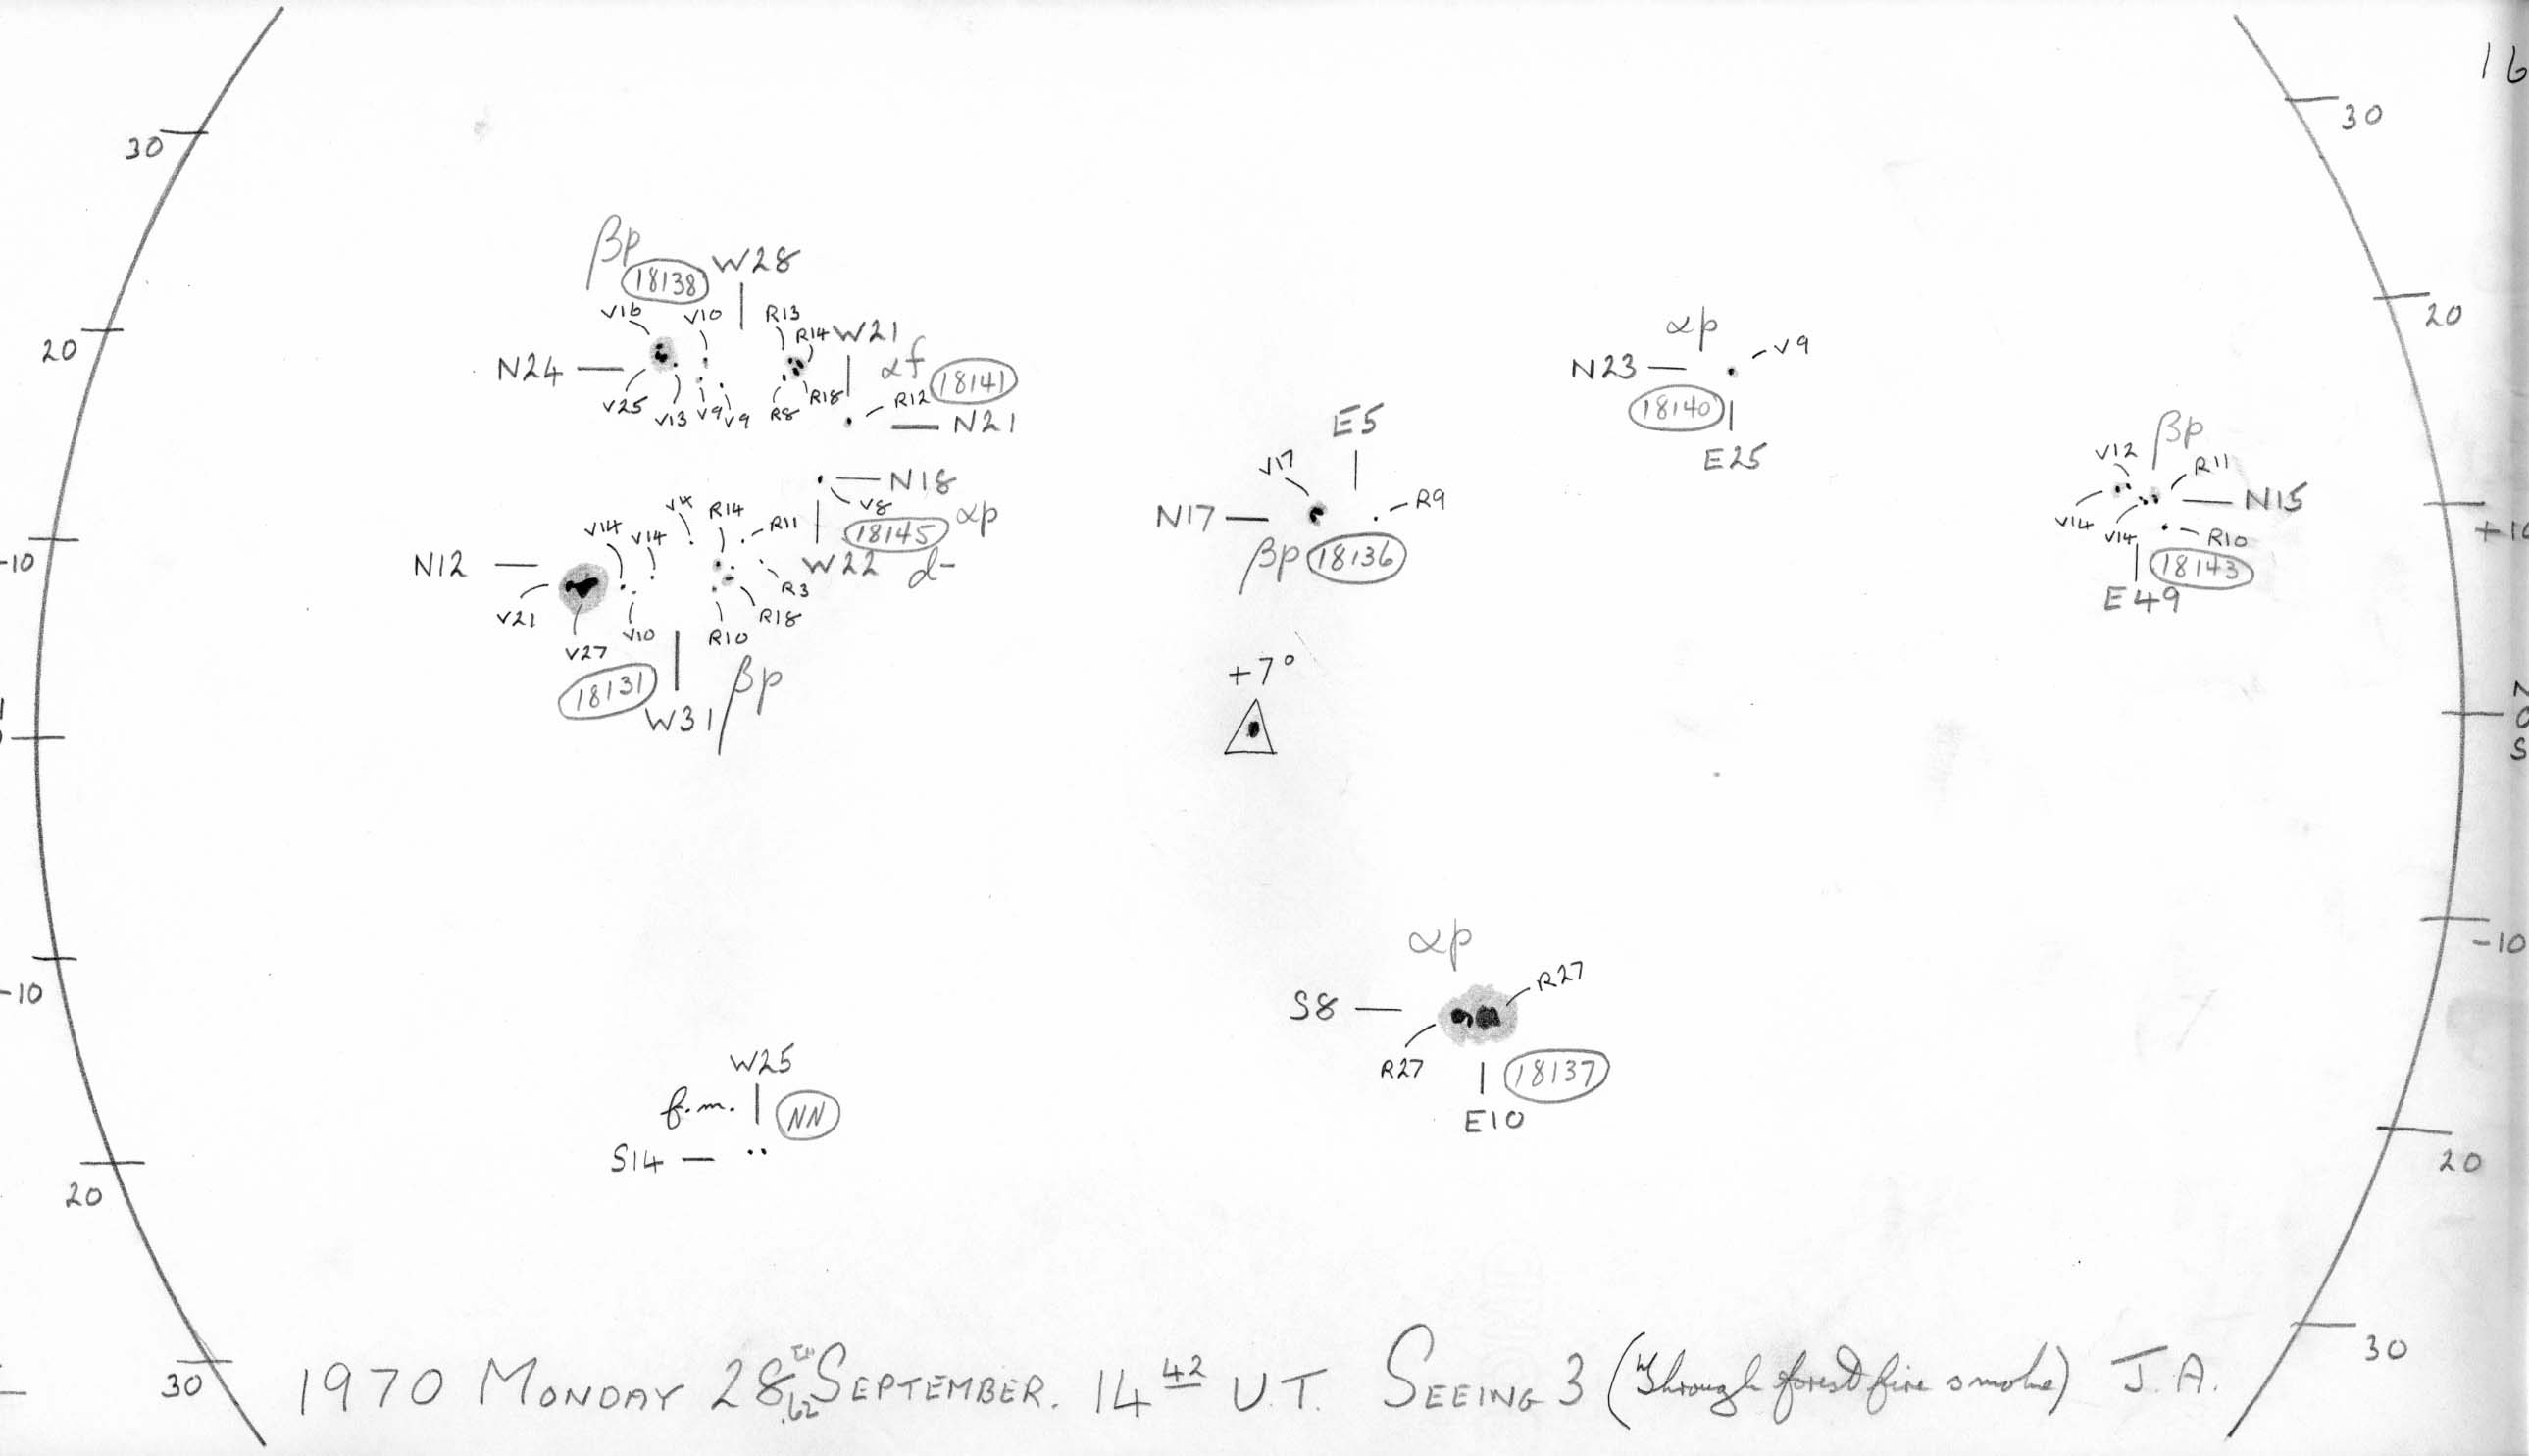 16
30
30
20
20
βp
18138
W28
V16
V10
R13
R14
W21
αf
18141
N24
V25
V13
V9
V9
R8
R18
R12
N21
αp
V9
N23
18140
E25
E5
V17
R9
N17
βp
18136
βp
V12
R11
N15
V14
V14
R10
18143
E49
+10
-10
N18
V8
18145
αp
W22
d-
R14
R11
V14
V14
N12
V21
V27
V10
R10
R18
R3
18131
W31
βp
+7°
N
0
S
αp
S8
R27
R27
18137
E10
-10
-10
W25
f.m.
NN
S14
20
20
30
30
1970 MONDAY 28TH SEPTEMBER. 14 42 U.T. SEEING 3 (Through forest fire smoke) J.A.
.62